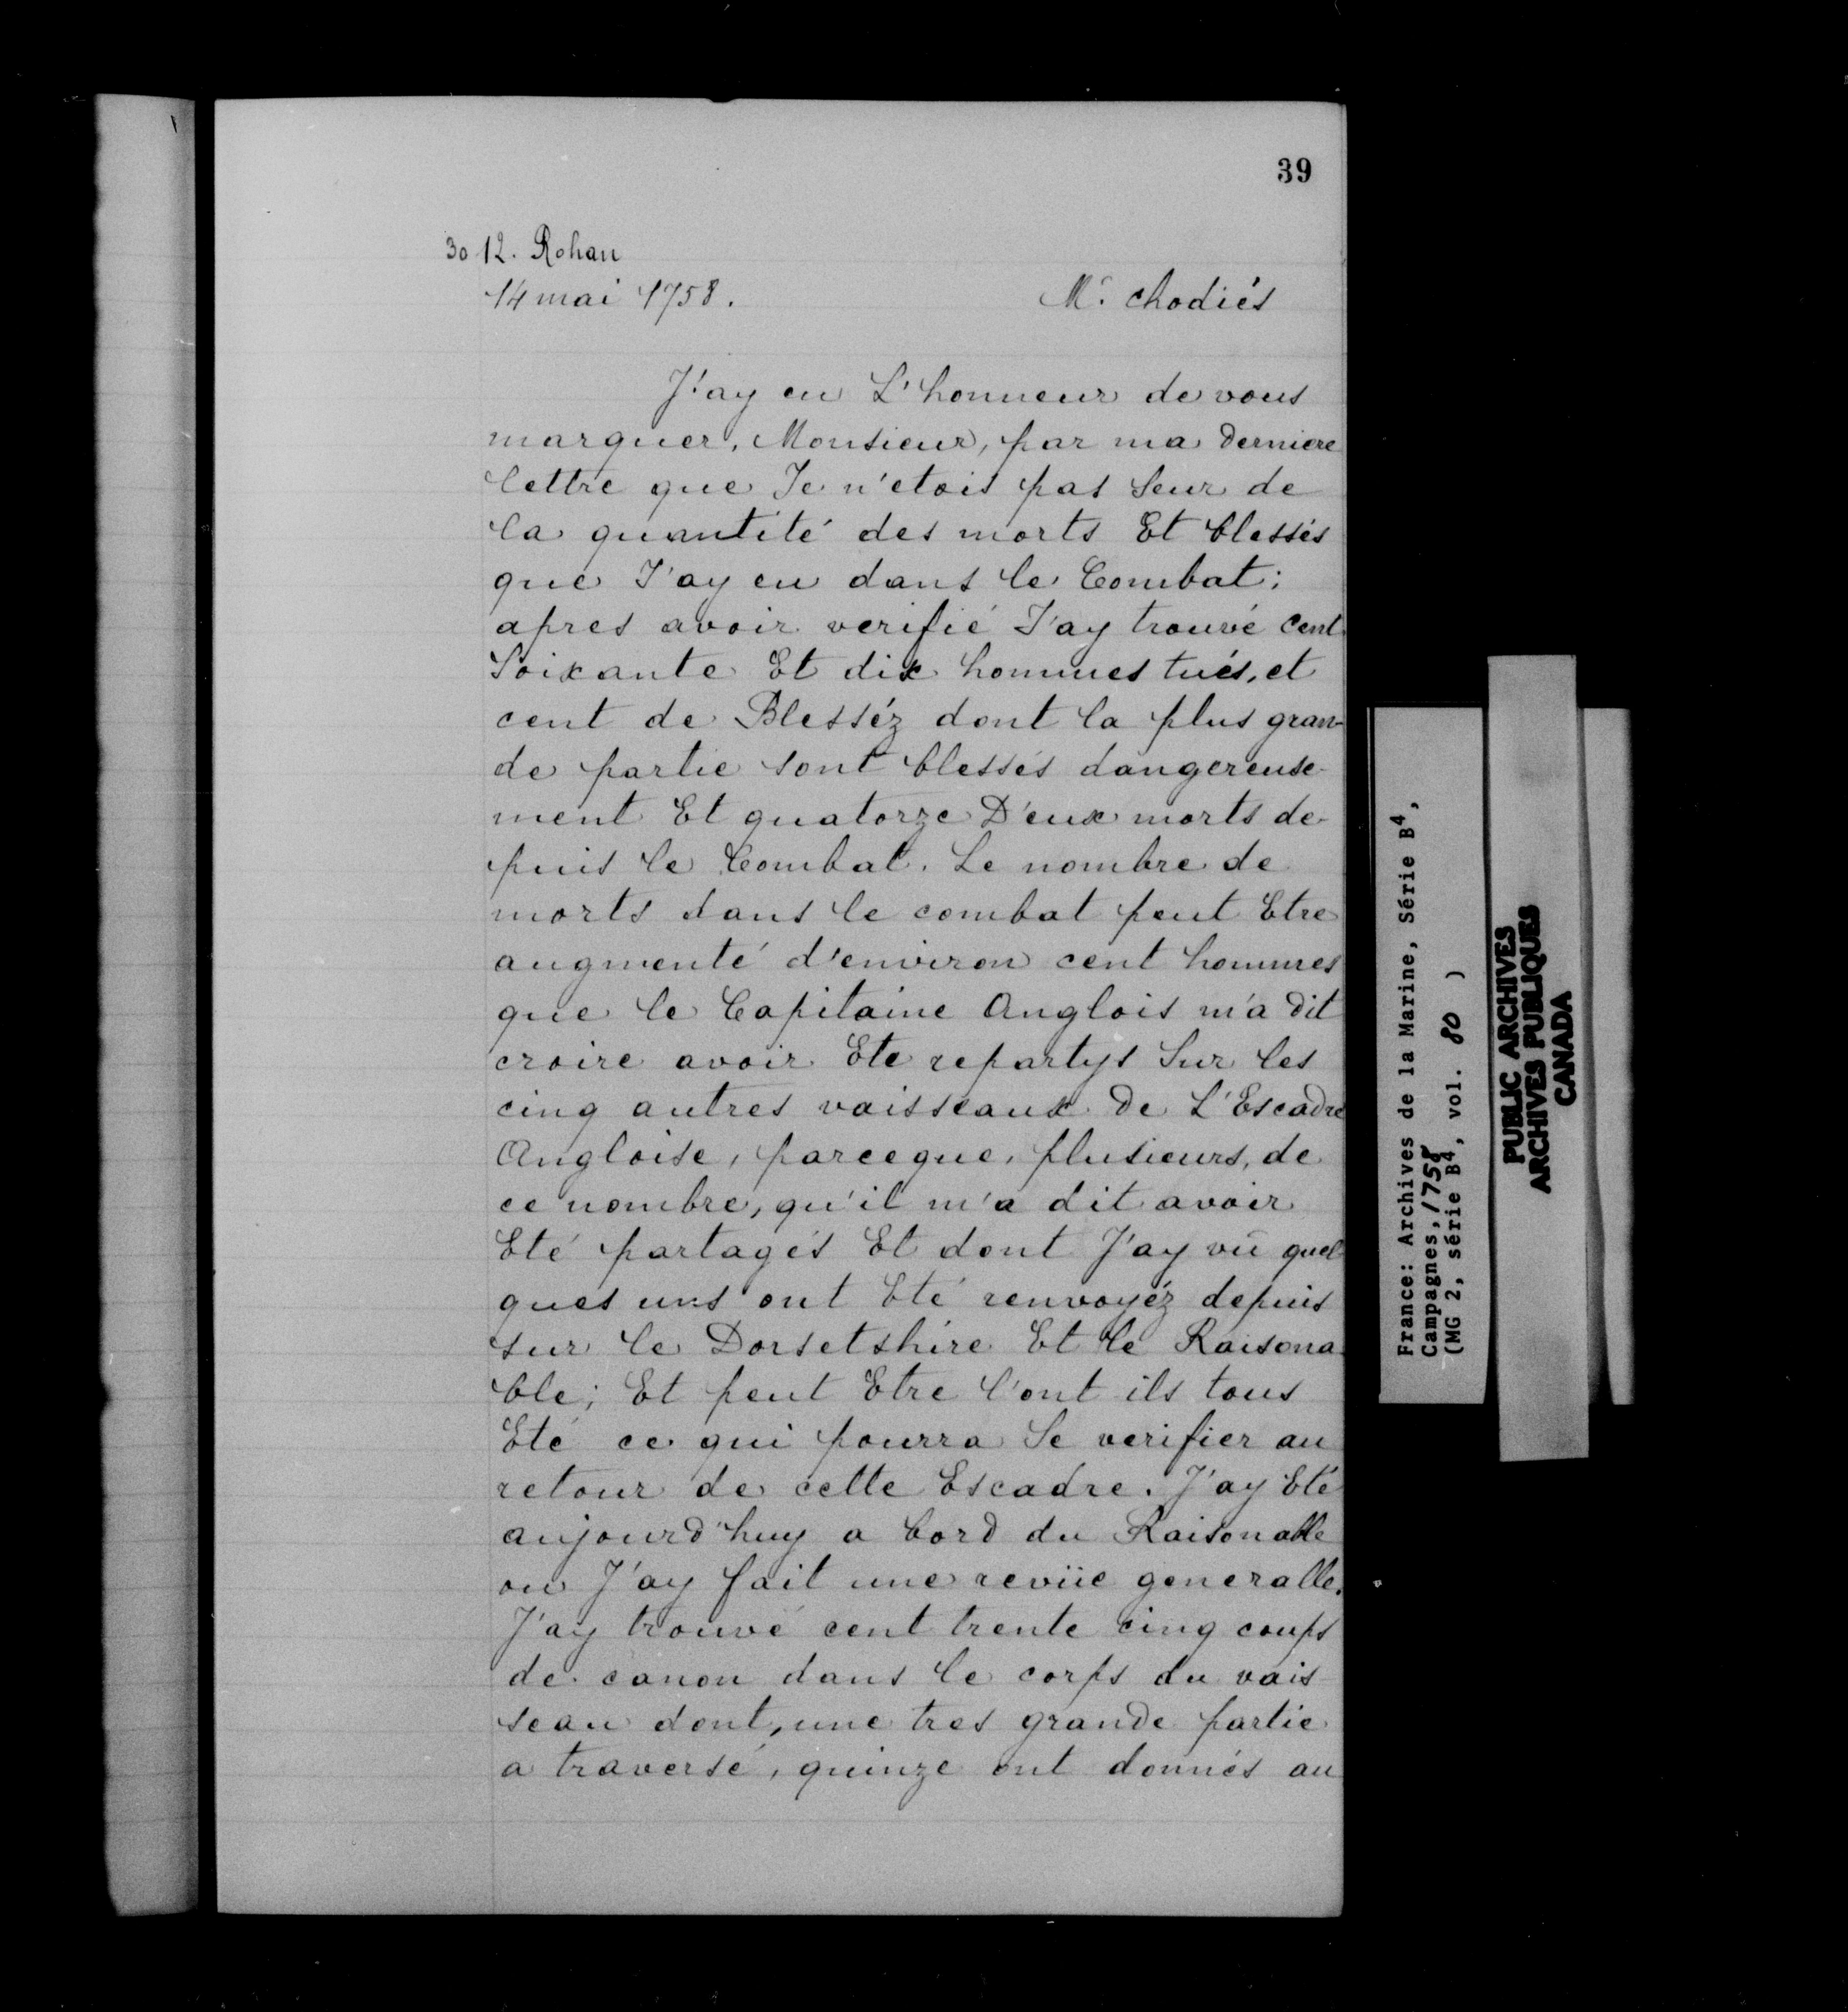 39
30 12. Rohan
14 mai 1758.
Mr. Chodiés
J'ay eu L'honneur de vous
marquer, Monsieur, par ma derniere
lettre que Je n'etois pas Seur de
la quantité des morts Et blessés
que J'ay eu dans le Combat;
apres avoir verifié J'ay trouvé Cent
Soixante Et dix hommes tués, et
cent de Blesséz dont la plus gran-
de partie sont blessés dangereuse-
ment Et quatorze D'eux morts de-
puis le Combat. Le nombre de
morts dans le combat peut Etre
augmenté d'environ cent hommes
que le Capitaine Anglois m'a dit
croire avoir Ete repartys Sur les
cinq autres vaisseaux De L'Escadre
Angloise, parceque, plusieurs, de
ce nombre, qu'il m'a dit avoir
Eté partagés Et dont J'ay vû quel
ques uns ont Eté renvoyéz depuis
sur le Dorsetshire Et le Raisona-
ble; Et peut Etre l'ont ils tous
Eté ce qui pourra Se verifier au
retour de cette Escadre. J'ay Eté
aujourd'huy a bord du Raisonable
ou J'ay fait une reviie generalle.
J'ay trouvé cent trente cinq coups
de canon dans le corps du vais-
seau dont, une tres grande partie
a traversé, quinze ont donnés au
France: Archives de la Marine, Série B4,
Campagnes, 1758
(MG 2, série B4, vol. 80 )
PUBLIC ARCHIVES
ARCHIVES PUBLIQUES
CANADA